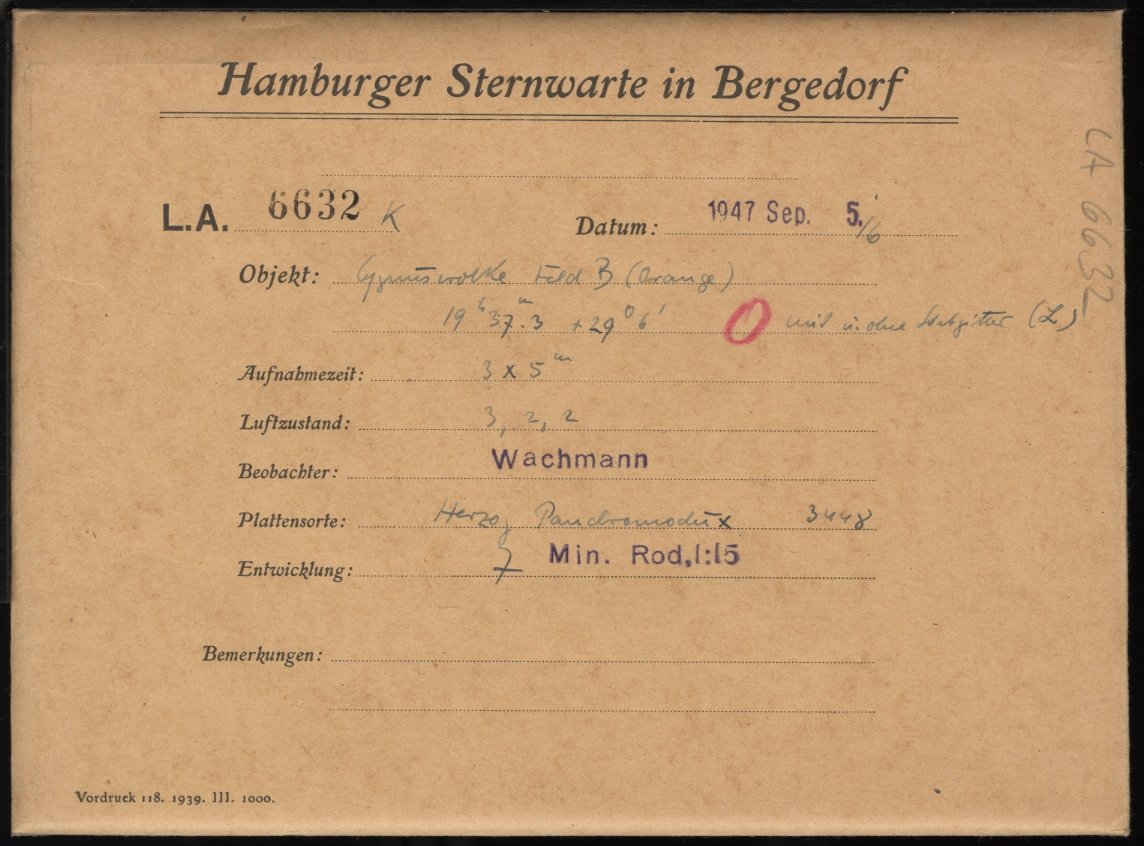 Hamburger Sternwarte in Bergedorf
L.A. 6632 K
Datum: 1947 Sep. 5./6
Objekt: Cygnuswolke Feld B (Orange)
19ʰ37ᵐ.3 +29°6' O mit u. ohne Stabgitter (L)
Aufnahmezeit: 3 x 5ᵐ
Luftzustand: 3, 2, 2
Beobachter: Wachmann
Plattensorte: Herzog 3448
Entwicklung: 7 Min. Rod,1:15
Bemerkungen:
Vordruck 118. 1939. III. 1000.
LA 6632